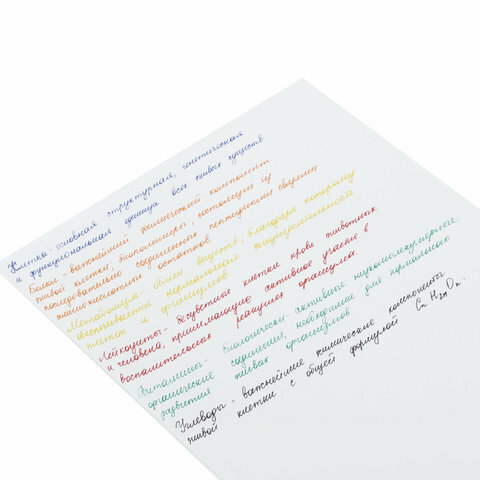 Клетка - основная структурная, генетическая
и функциональная единица всех живых существ
Белки - важнейший химический компонент
живой клетки, биополимеры, состоящие из
последовательно соединенных пептидной связями
аминокислотных остатков.
Метаболизм - обмен веществ, благодаря которому
обеспечивается нормальная жизнедеятельность
клеток и организмов.
Лейкоциты - бесцветные клетки крови животных
и человека, принимающие активное участие в
воспалительных реакциях организма.
Витамины - биологически активные низкомолекулярные
органические соединения, необходимые для нормального
развития живых организмов
Углеводы - важнейшие химические компоненты
живой клетки с общей формулой Cn H2n On.